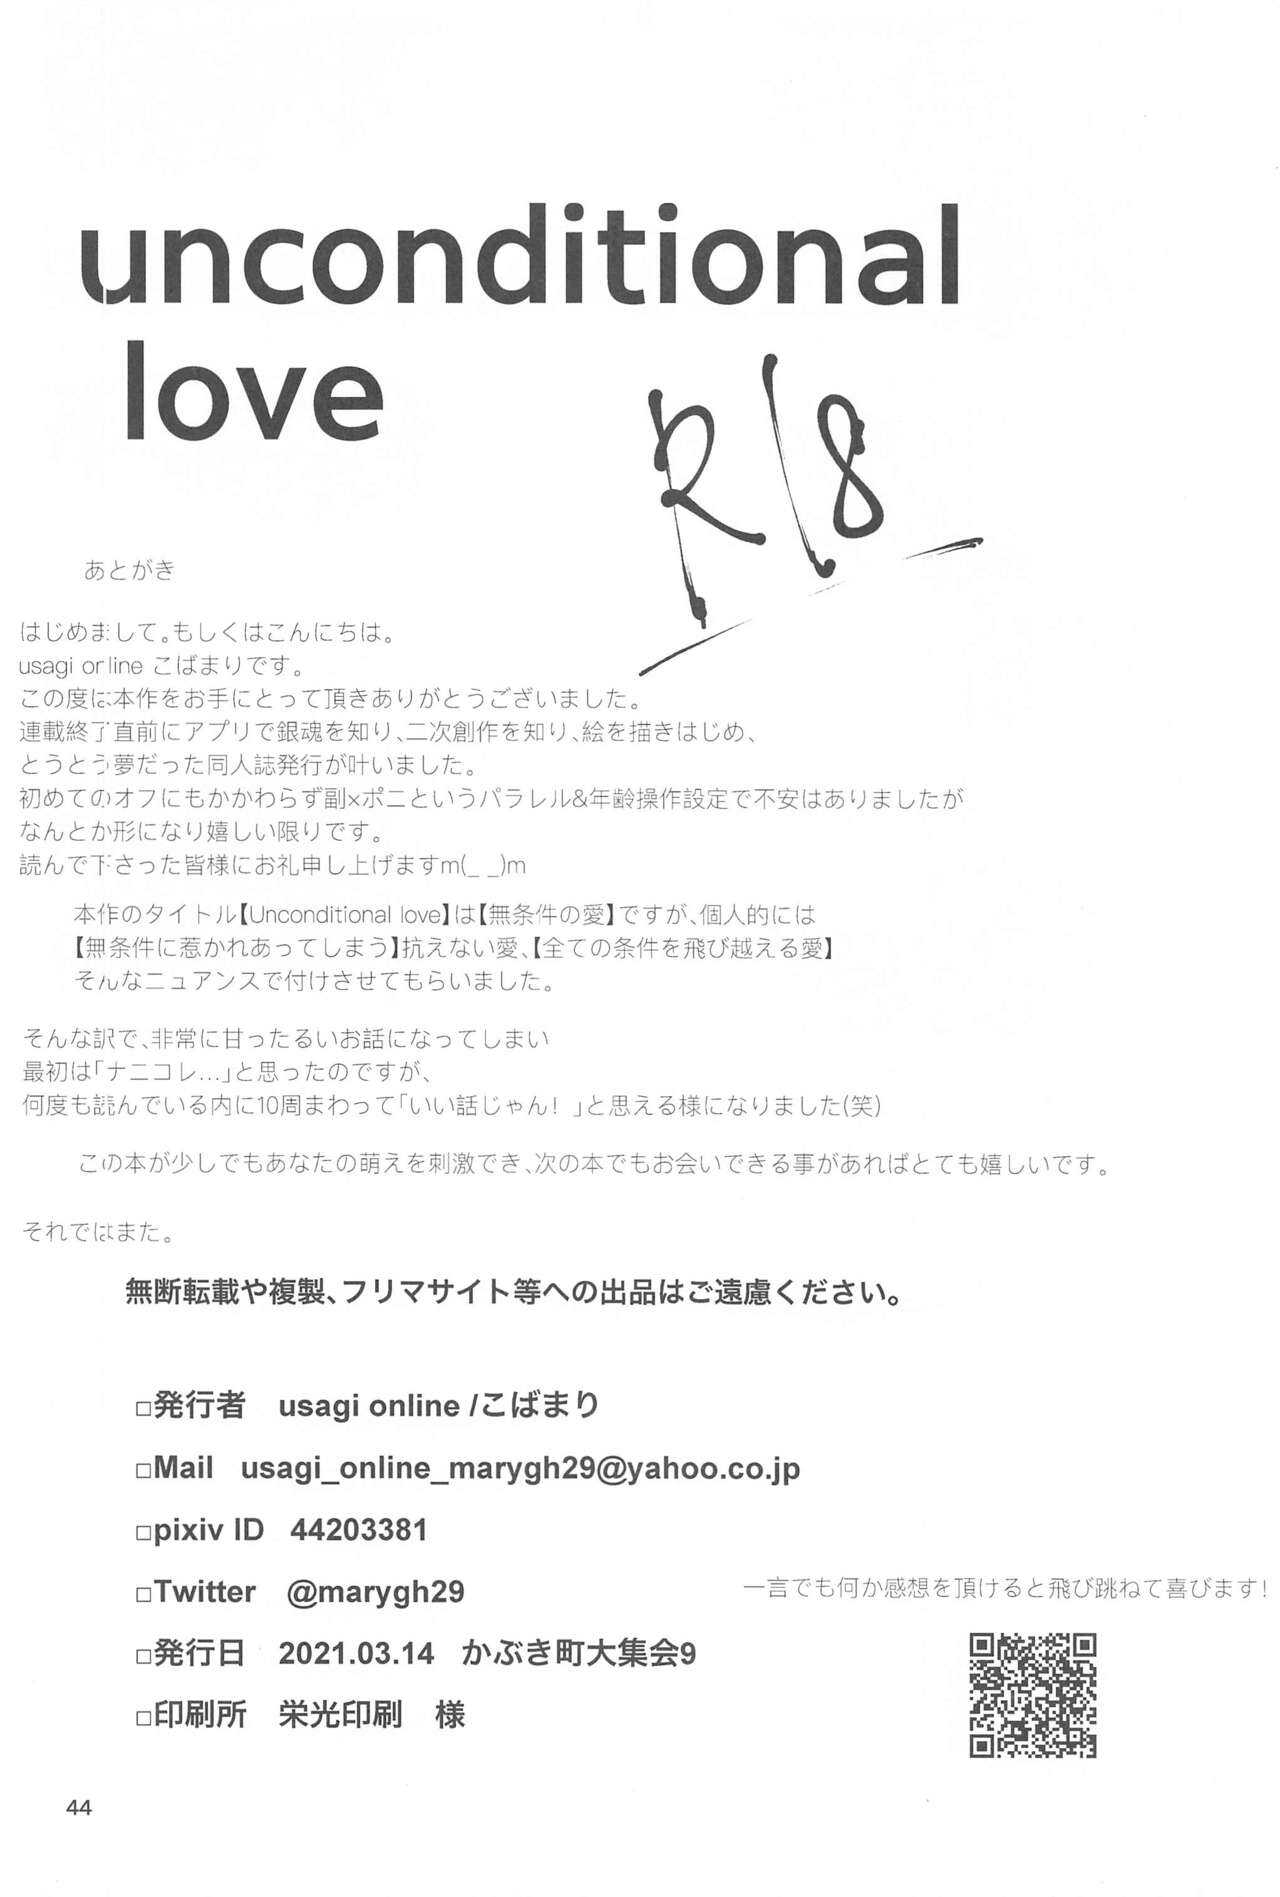 unconditional
love
R18
あとがき
はじめまして。もしくはこんにちは。
usagi online こばまりです。
この度は本作をお手にとって頂きありがとうございました。
連載終了直前にアプリで銀魂を知り、二次創作を知り、絵を描きはじめ、
とうとう夢だった同人誌発行が叶いました。
初めてのオフにもかかわらず副×ポニというパラレル&年齢操作設定で不安はありましたが
なんとか形になり嬉しい限りです。
読んで下さった皆様にお礼申し上げますm(_ _)m
本作のタイトル【Unconditional love】は【無条件の愛】ですが、個人的には
【無条件に惹かれあってしまう】抗えない愛、【全ての条件を飛び越える愛】
そんなニュアンスで付けさせてもらいました。
そんな訳で、非常に甘ったるいお話になってしまい
最初は「ナニコレ...」と思ったのですが、
何度も読んでいる内に10周まわって「いい話じゃん！」と思える様になりました(笑)
この本が少しでもあなたの萌えを刺激でき、次の本でもお会いできる事があればとても嬉しいです。
それではまた。
無断転載や複製、フリマサイト等への出品はご遠慮ください。
□発行者　usagi online /こばまり
□Mail　usagi_online_marygh29@yahoo.co.jp
□pixiv ID　44203381
□Twitter　@marygh29
一言でも何か感想を頂けると飛び跳ねて喜びます!
□発行日　2021.03.14　かぶき町大集会9
□印刷所　栄光印刷　様
44